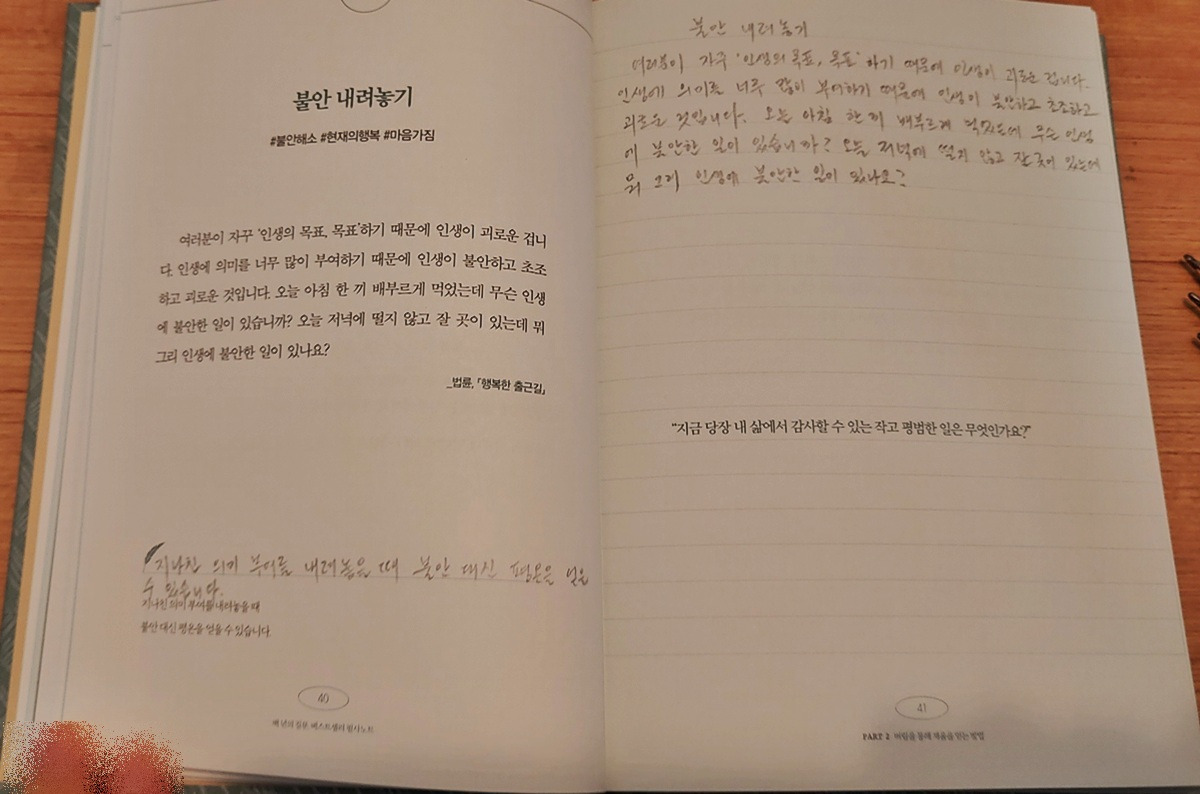 불안 내려놓기
#불안해소 #현재의행복 #마음가짐
여러분이 자꾸 '인생의 목표, 목표'하기 때문에 인생이 괴로운 겁니
다. 인생에 의미를 너무 많이 부여하기 때문에 인생이 불안하고 초조
하고 괴로운 것입니다. 오늘 아침 한 끼 배부르게 먹었는데 무슨 인생
에 불안한 일이 있습니까? 오늘 저녁에 떨지 않고 잘 곳이 있는데 뭐
그리 인생에 불안한 일이 있나요?
_법륜, 「행복한 출근길」
지나친 의미 부여를 내려놓을 때 불안 대신 평온을 얻을
수 있습니다.
지나친 의미 부여를 내려놓을 때
불안 대신 평온을 얻을 수 있습니다.
40
베스트셀러 필사노트
불안 내려놓기
여러분이 자꾸 '인생의 목표, 목표' 하기 때문에 인생이 괴로운 겁니다.
인생에 의미를 너무 많이 부여하기 때문에 인생이 불안하고 초조하고
괴로운 것입니다. 오늘 아침 한 끼 배부르게 먹었는데 무슨 인생
에 불안한 일이 있습니까? 오늘 저녁에 떨지 않고 잘 곳이 있는데
뭐 그리 인생에 불안한 일이 있나요?
"지금 당장 내 삶에서 감사할 수 있는 작고 평범한 일은 무엇인가요?"
41
PART 2 비움을 통해 채움을 얻는 방법